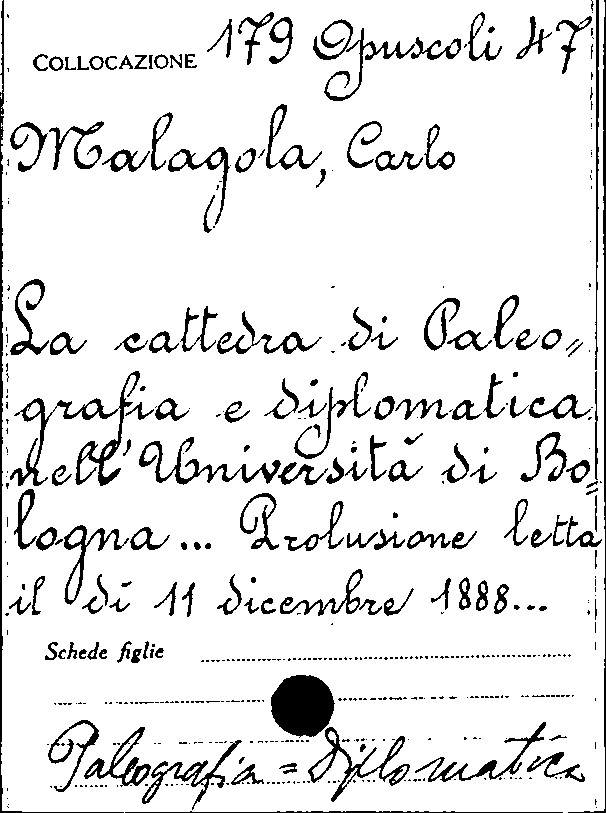 COLLOCAZIONE 179 Opuscoli 47
Malagola, Carlo
La cattedra di Paleo=
grafia e diplomatica
nell'Università di Bo=
logna... Prolusione letta
il dí 11 dicembre 1888...
Schede figlie
Paleografia = Diplomatica